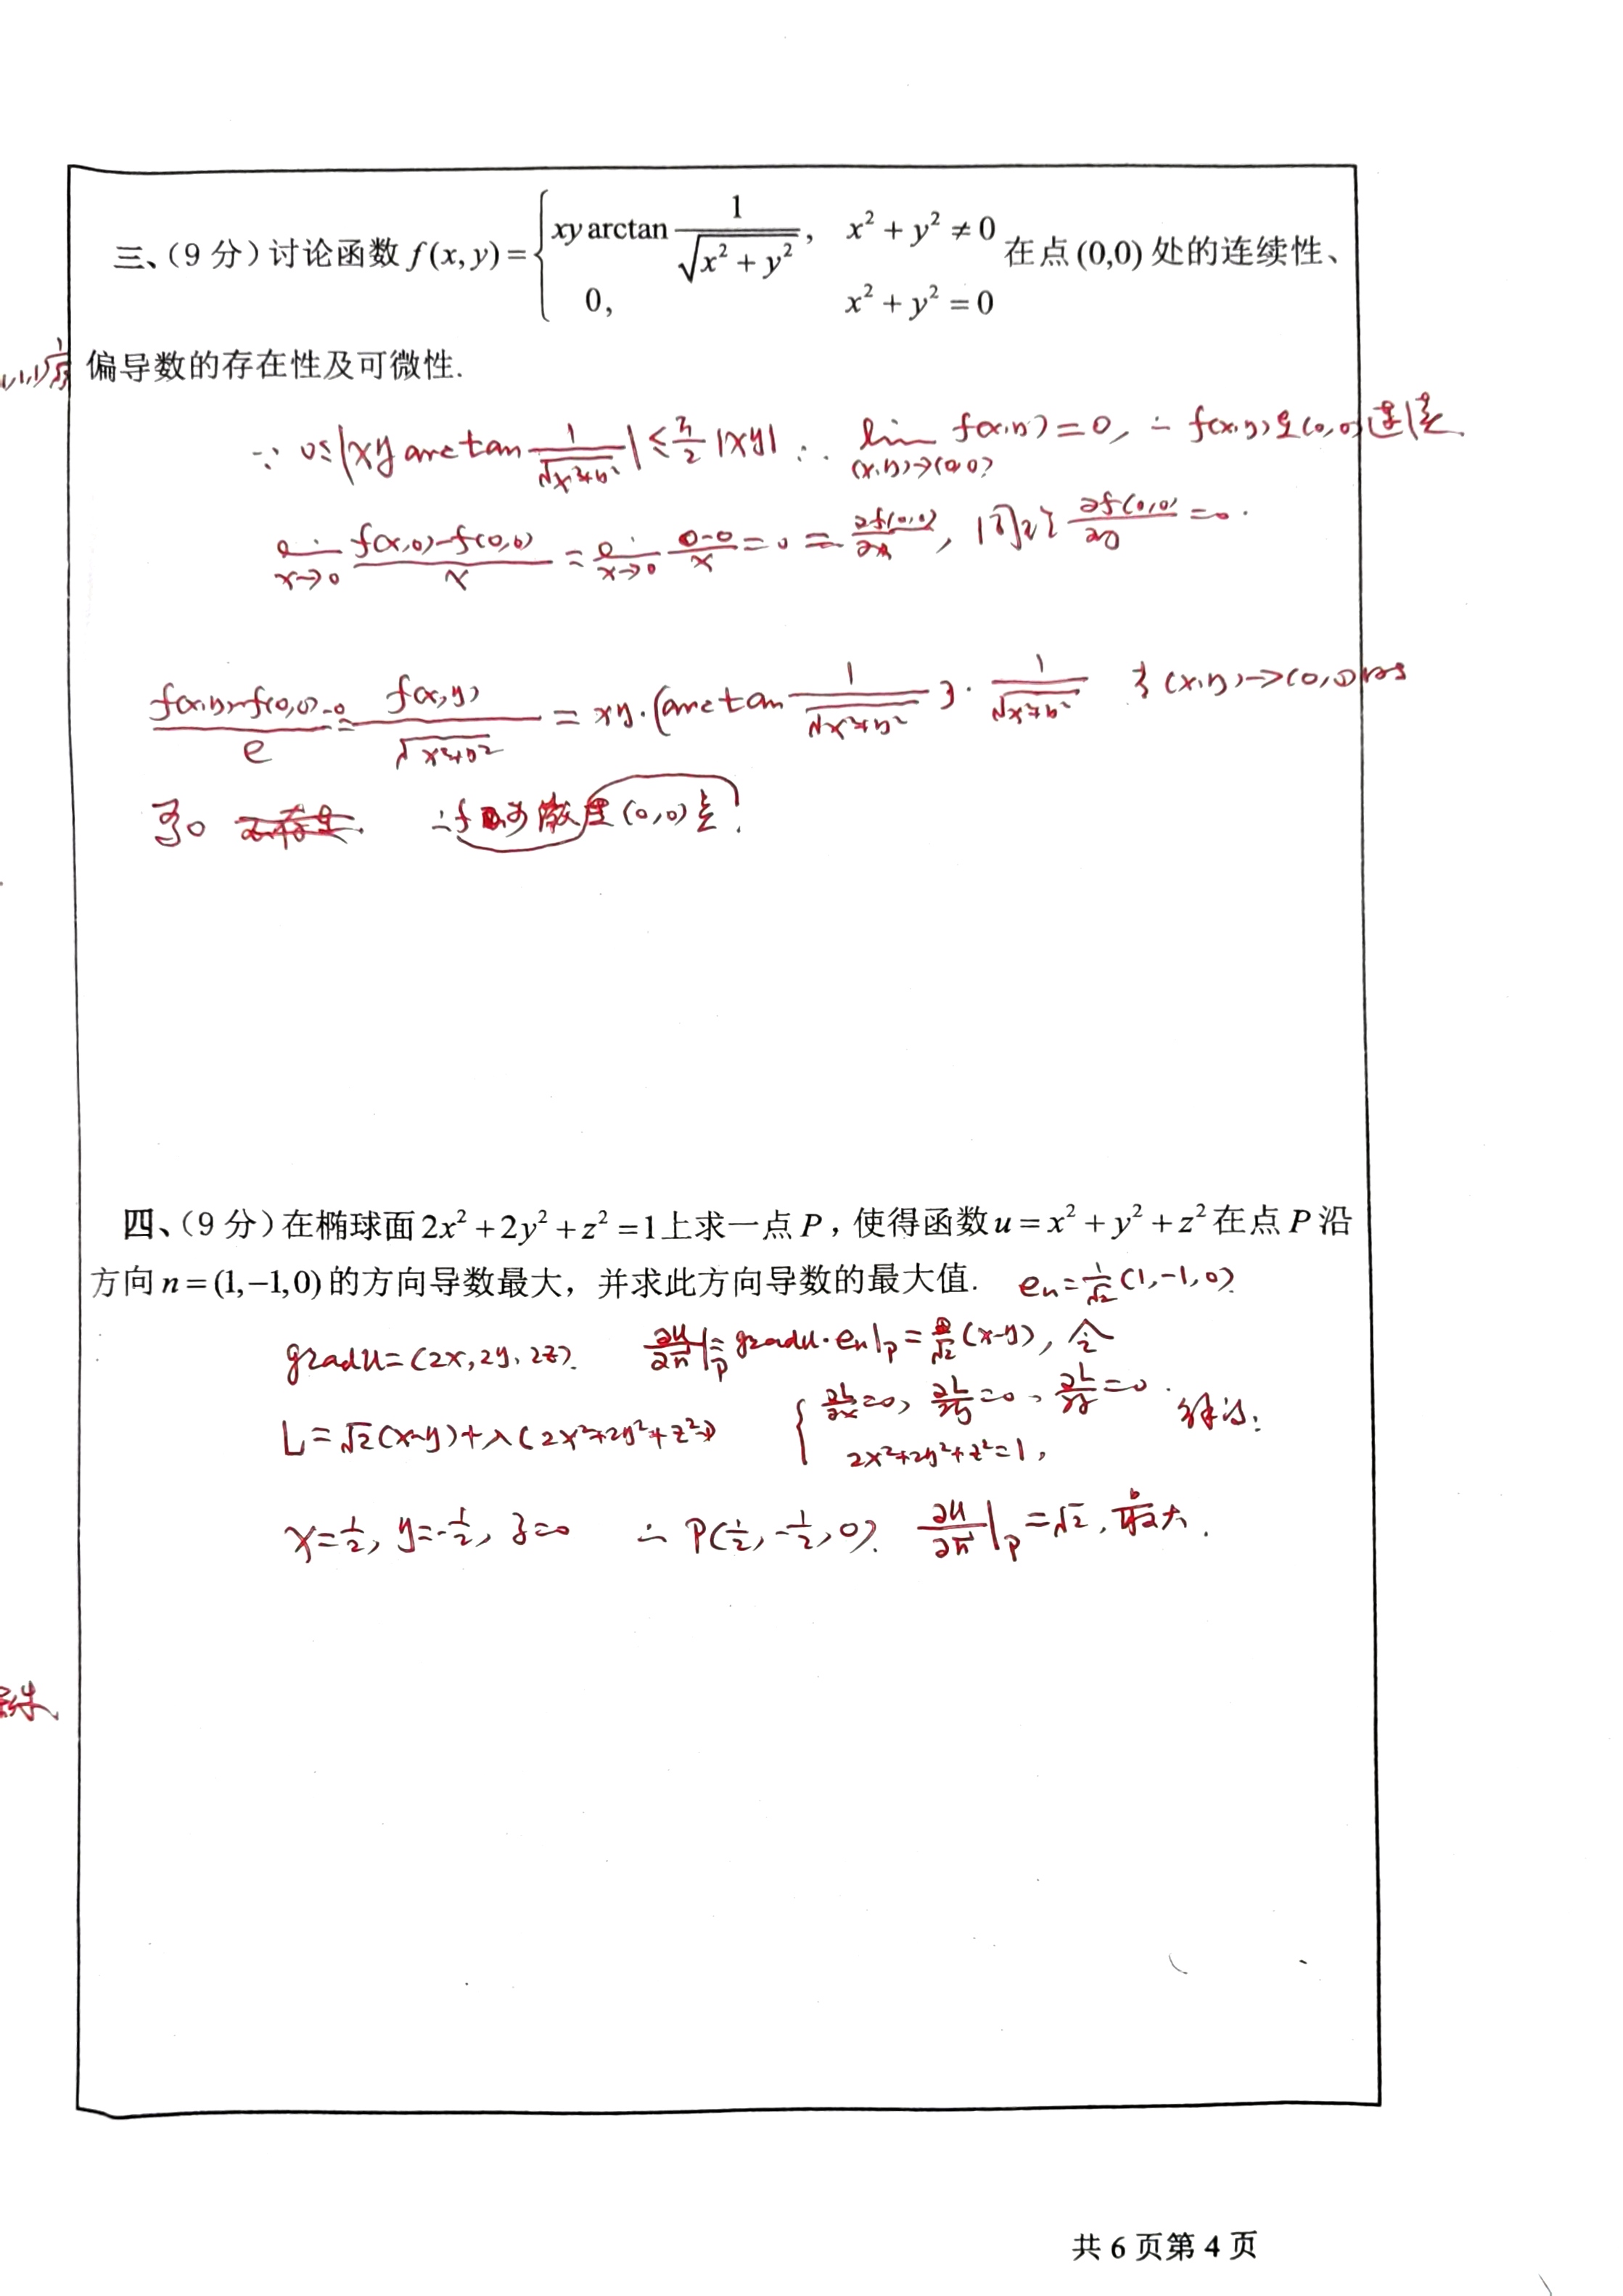 三、(9 分) 讨论函数 f(x, y) = { xy arctan 1/√(x² + y²), x² + y² ≠ 0 在点 (0,0) 处的连续性、
0, x² + y² = 0
偏导数的存在性及可微性.
∵ 0≤|xy arctan 1/√(x²+y²)| ≤ π/2 |xy| ∴ lim (x,y)→(0,0) f(x,y) = 0, ∴ f(x,y)在(0,0)连续
lim x→0 (f(x,0)-f(0,0))/x = lim x→0 (0-0)/x = 0 = ∂f(0,0)/∂x, 同理 ∂f(0,0)/∂y = 0.
(f(x,y)-f(0,0)-0)/ρ = f(x,y)/√(x²+y²) = xy·(arctan 1/√(x²+y²))·1/√(x²+y²) 当(x,y)→(0,0)时
→0 ∴f 可微在(0,0)点.
四、(9 分) 在椭球面 2x² + 2y² + z² = 1 上求一点 P, 使得函数 u = x² + y² + z² 在点 P 沿
方向 n = (1,−1,0) 的方向导数最大, 并求此方向导数的最大值. eₙ = 1/√2 (1,-1,0)
gradu = (2x, 2y, 2z). ∂u/∂n|p = gradu·eₙ|p = 2/√2 (x-y), 令
L = √2(x-y)+λ(2x²+2y²+z²-1) { ∂L/∂x=0, ∂L/∂y=0, ∂L/∂z=0. 解得:
2x²+2y²+z²=1,
x=1/2, y=-1/2, z=0 ∴ P(1/2, -1/2, 0). ∂u/∂n|p = √2, 最大.
共 6 页第 4 页